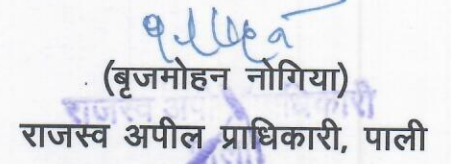 (बृजमोहन नोगिया)
राजस्व अपील प्राधिकारी, पाली